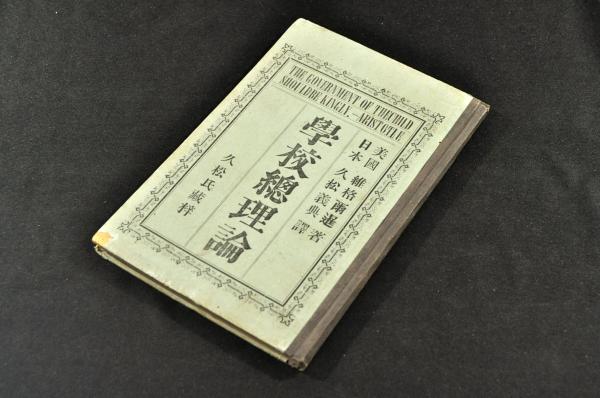 THE GOVERNMENT OF THECHILD
SHOULDBE KINGLY.—ARISTOTLE
美國 維格爾遜著
日本 久松義典譯
學校總理論
久松氏藏梓